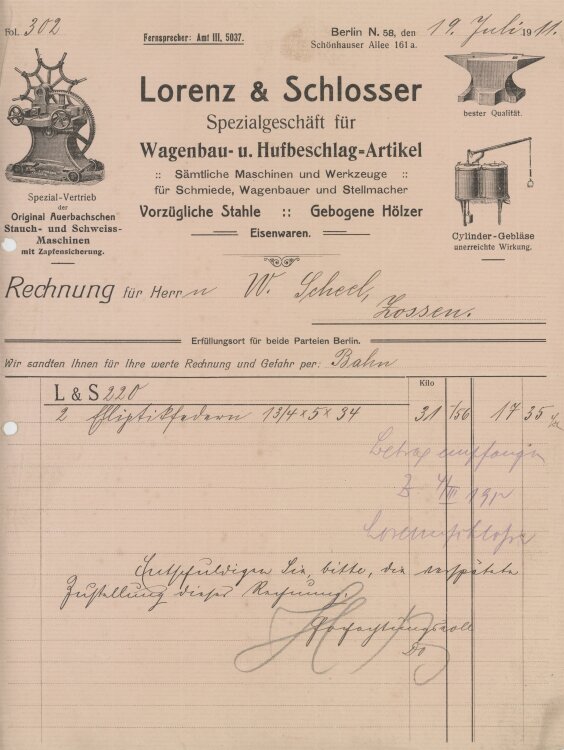 Fol. 302
Fernsprecher: Amt III, 5037.
Berlin N. 58, den 19. Juli 1911.
Schönhauser Allee 161a.
Lorenz & Schlosser
Spezialgeschäft für
Wagenbau- u. Hufbeschlag-Artikel
:: Sämtliche Maschinen und Werkzeuge ::
für Schmiede, Wagenbauer und Stellmacher
Vorzügliche Stahle :: Gebogene Hölzer
Eisenwaren.
bester Qualität.
Spezial-Vertrieb
der
Original Auerbachschen
Stauch- und Schweiss-
Maschinen
mit Zapfensicherung.
Cylinder-Gebläse
unerreichte Wirkung.
Rechnung für Herrn W. Scheel,
Zossen.
Erfüllungsort für beide Parteien Berlin.
Wir sandten Ihnen für Ihre werte Rechnung und Gefahr per: Bahn
Kilo
L & S 220
2 Elliptikfedern 1 3/4 x 5 x 34 31 /56 17 35
Betrag empfangen
Lorenz Schlosser
Entschuldigen Sie, bitte, die verspätete
Zustellung dieser Rechnung.
Hochachtungsvoll
Do